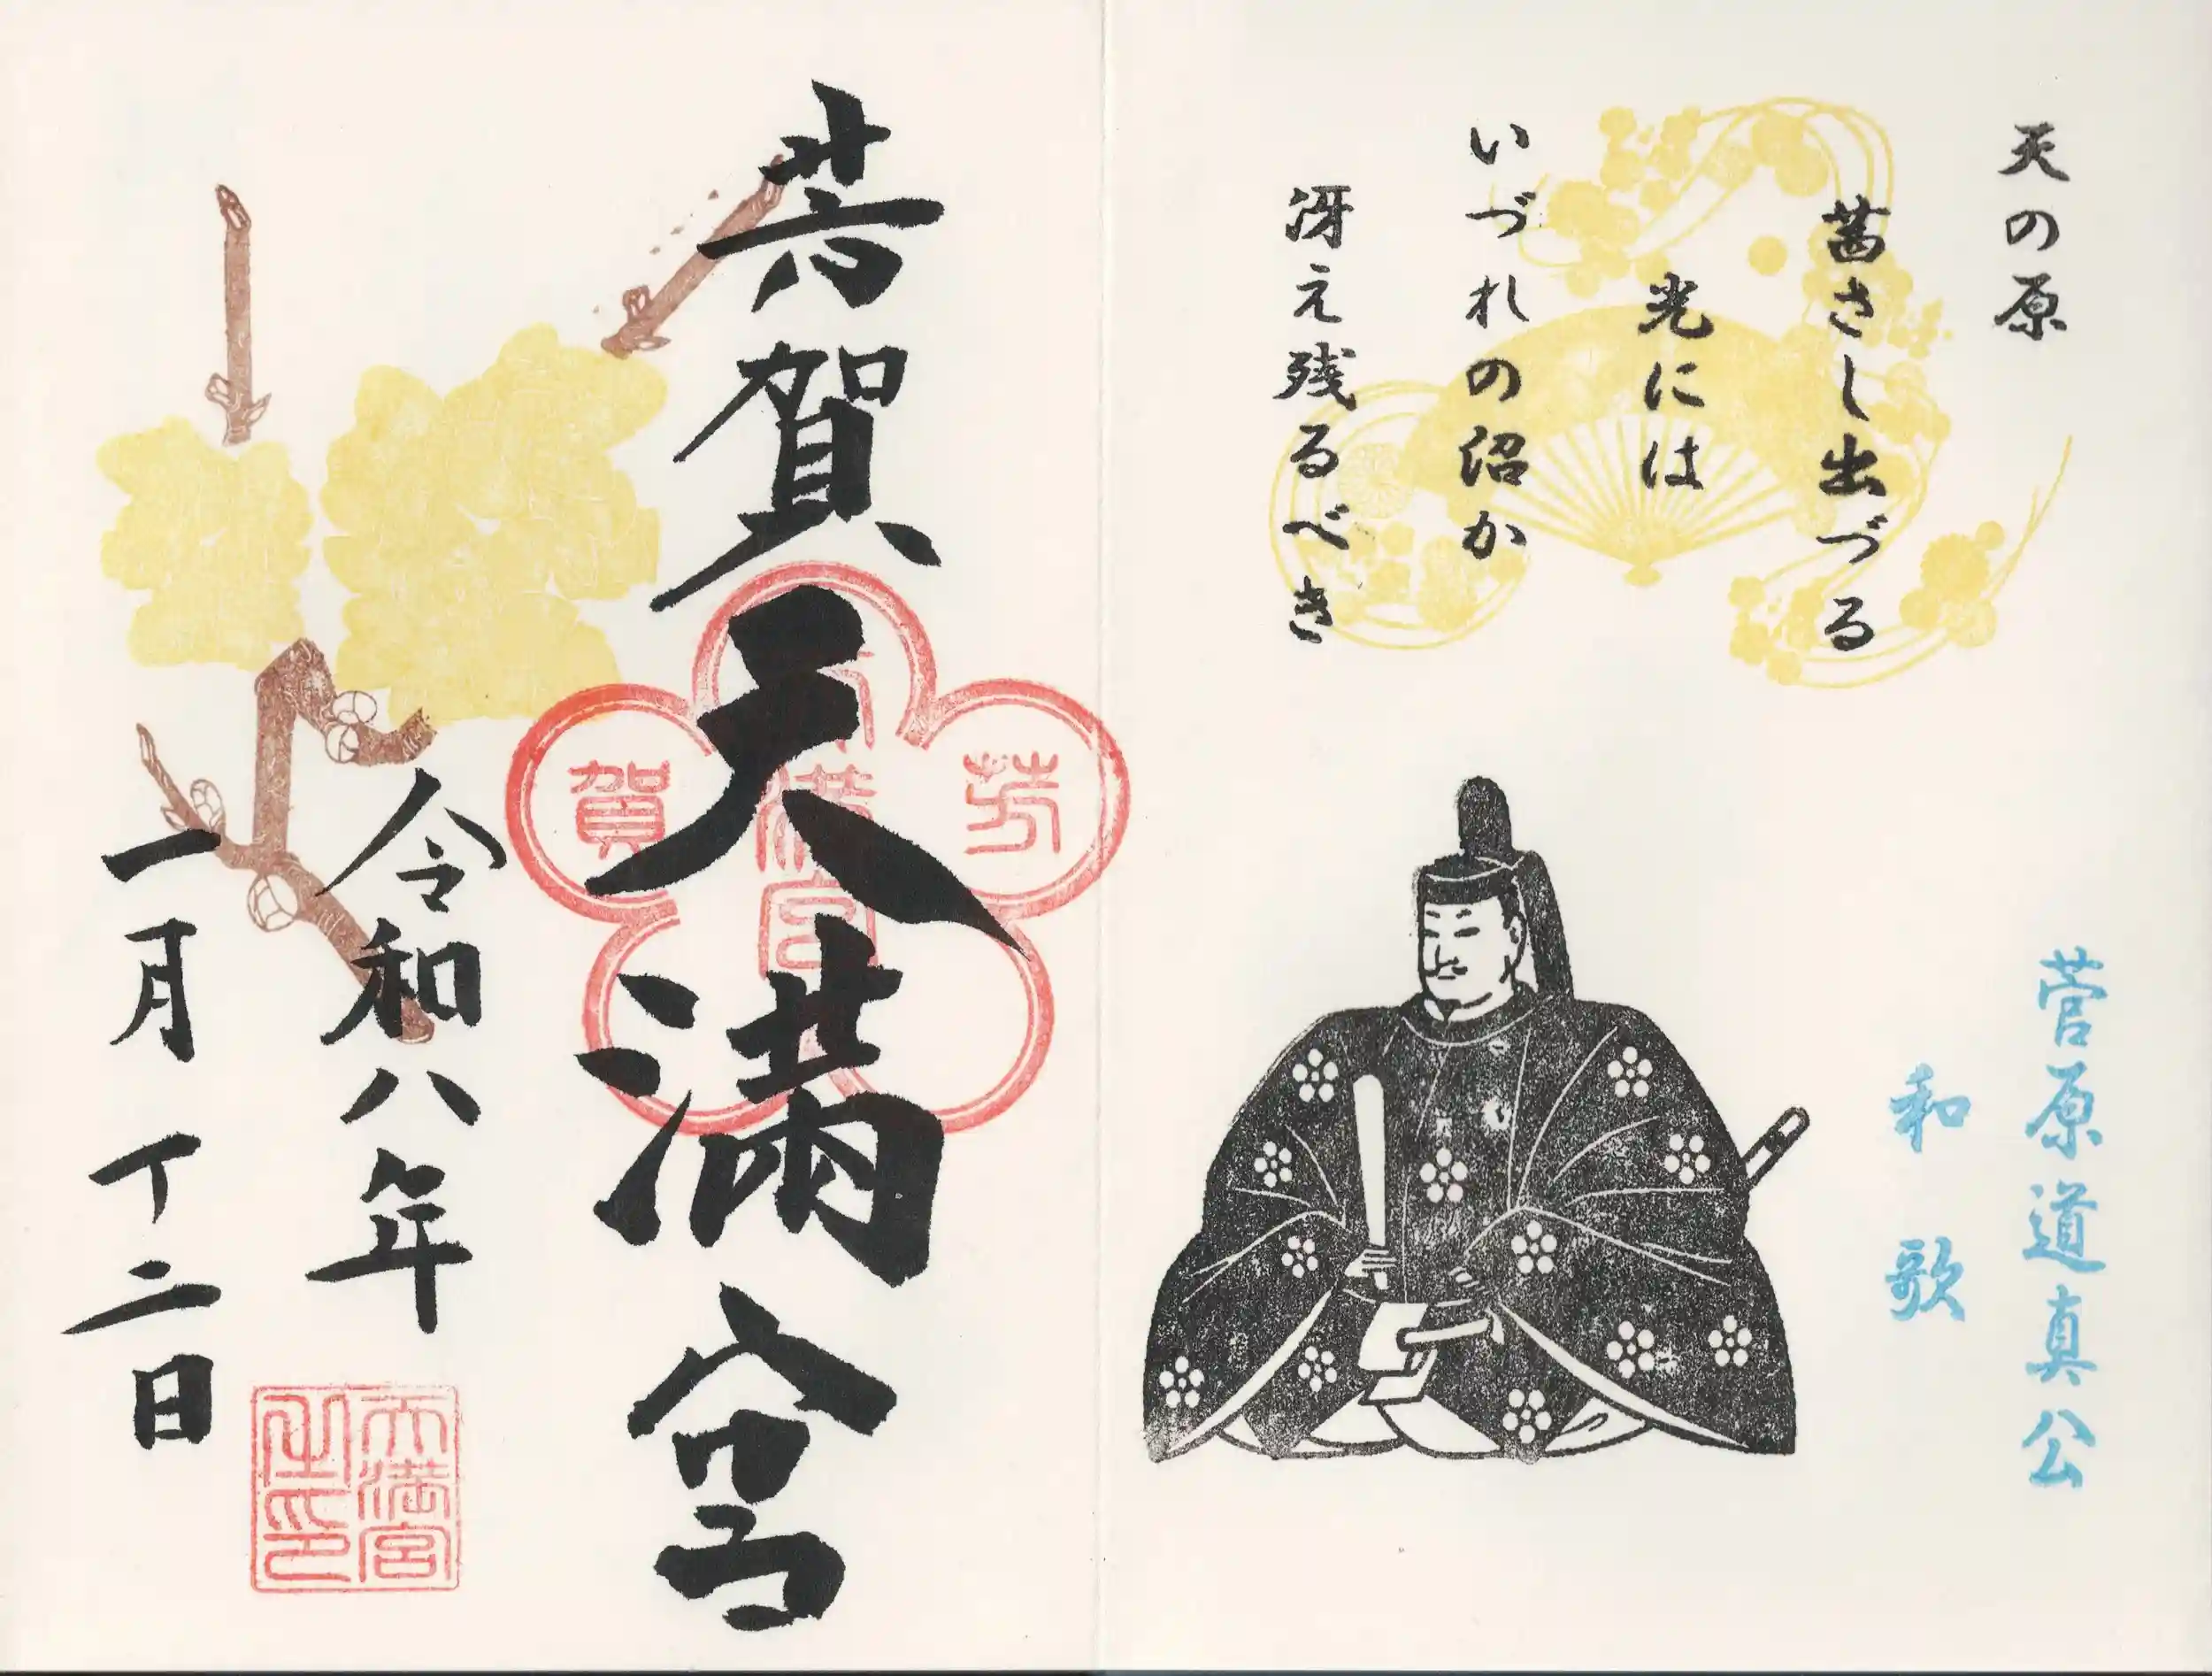 天の原
茜さし出づる
光には
いづれの沼か
冴え残るべき
菅原道真公
和歌
芳賀天満宮
芳
賀
天満宮
令和八年
一月十二日
天満宮
之印